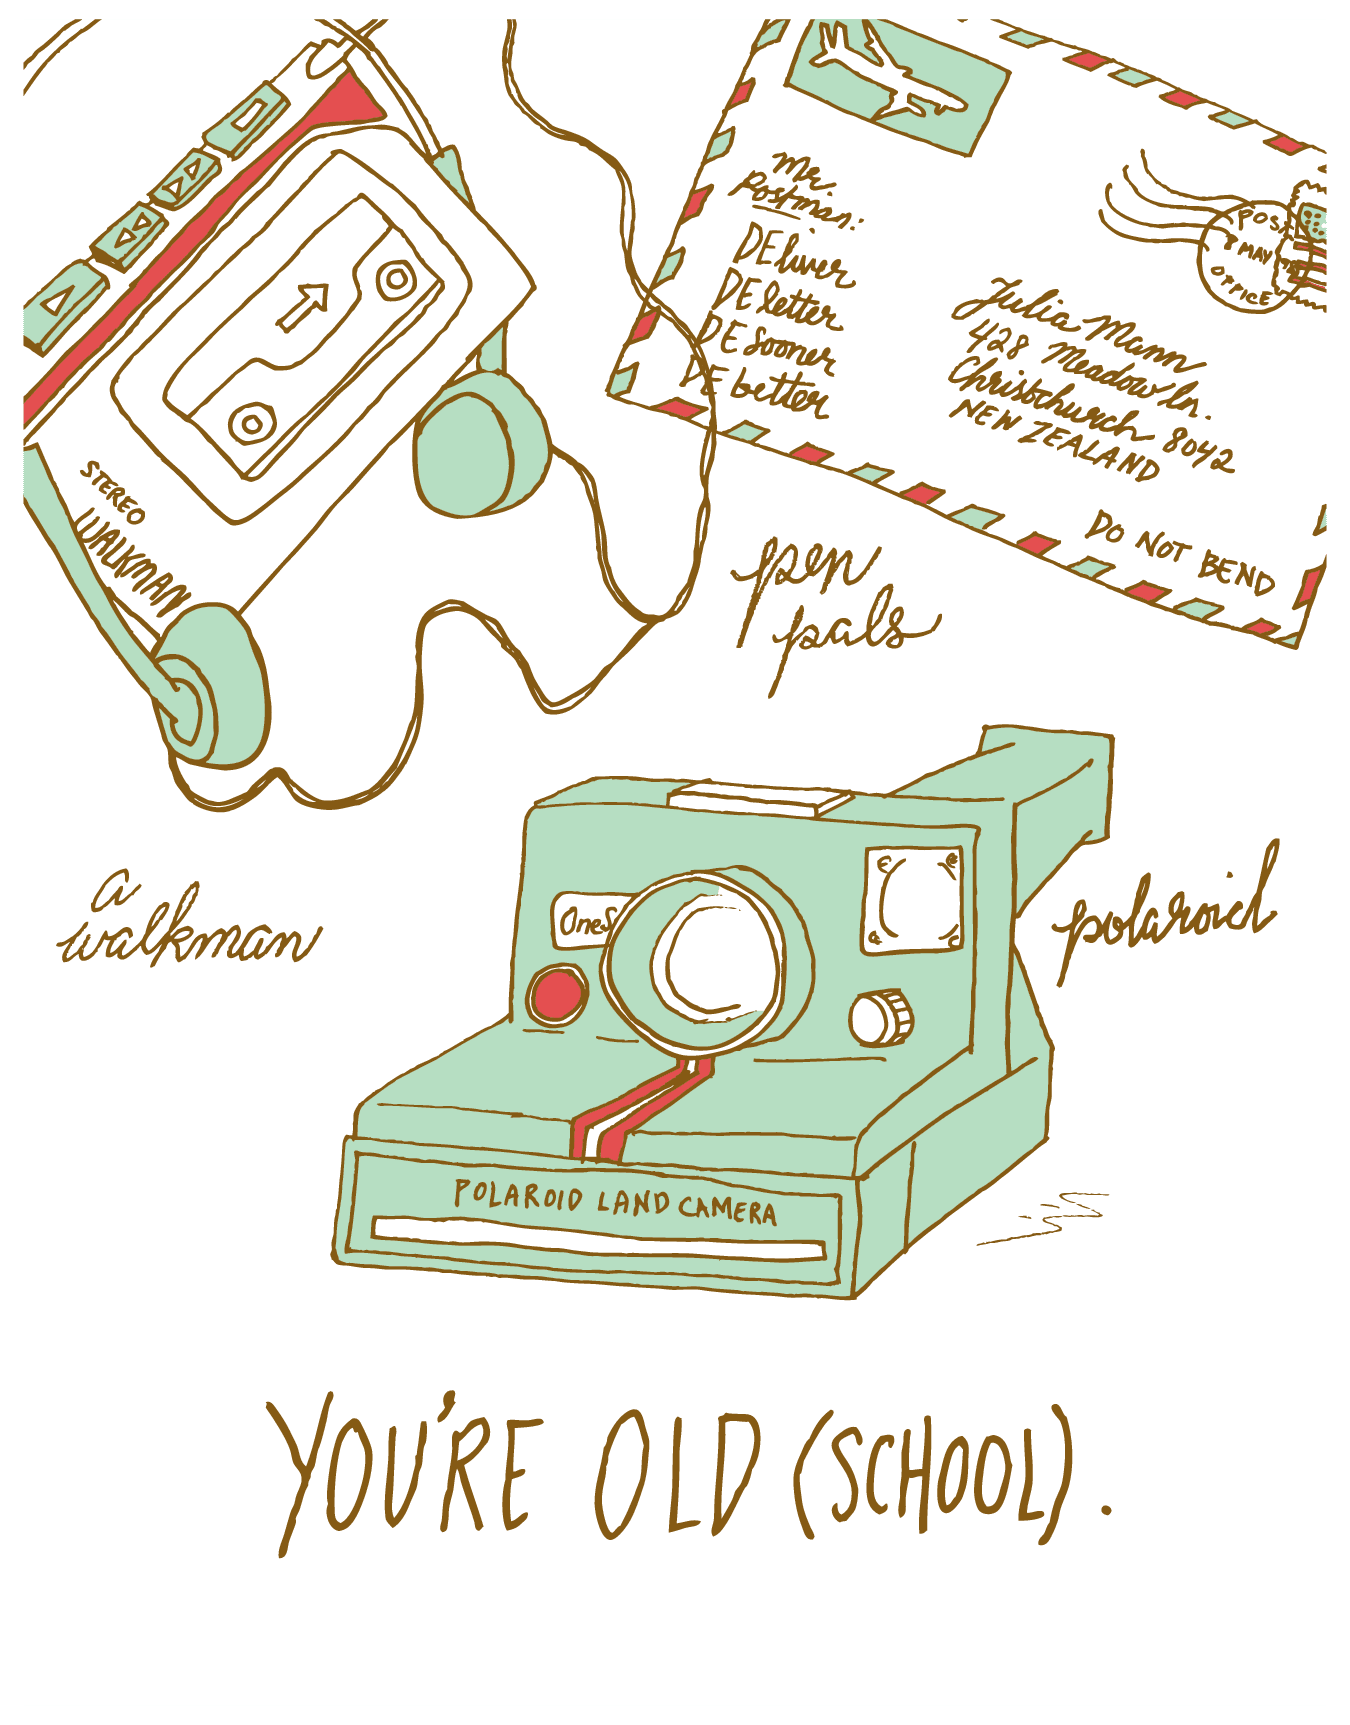 Mr.
Postman:
DEliver
DEletter
DEsooner
DEbetter
POST
8 MAY
OFFICE
Julia Mann
428 Meadow Ln.
Christchurch 8042
NEW ZEALAND
DO NOT BEND
STEREO
WALKMAN
pen
pals
a
walkman
OneS
polaroid
POLAROID LAND CAMERA
YOU'RE OLD (SCHOOL).